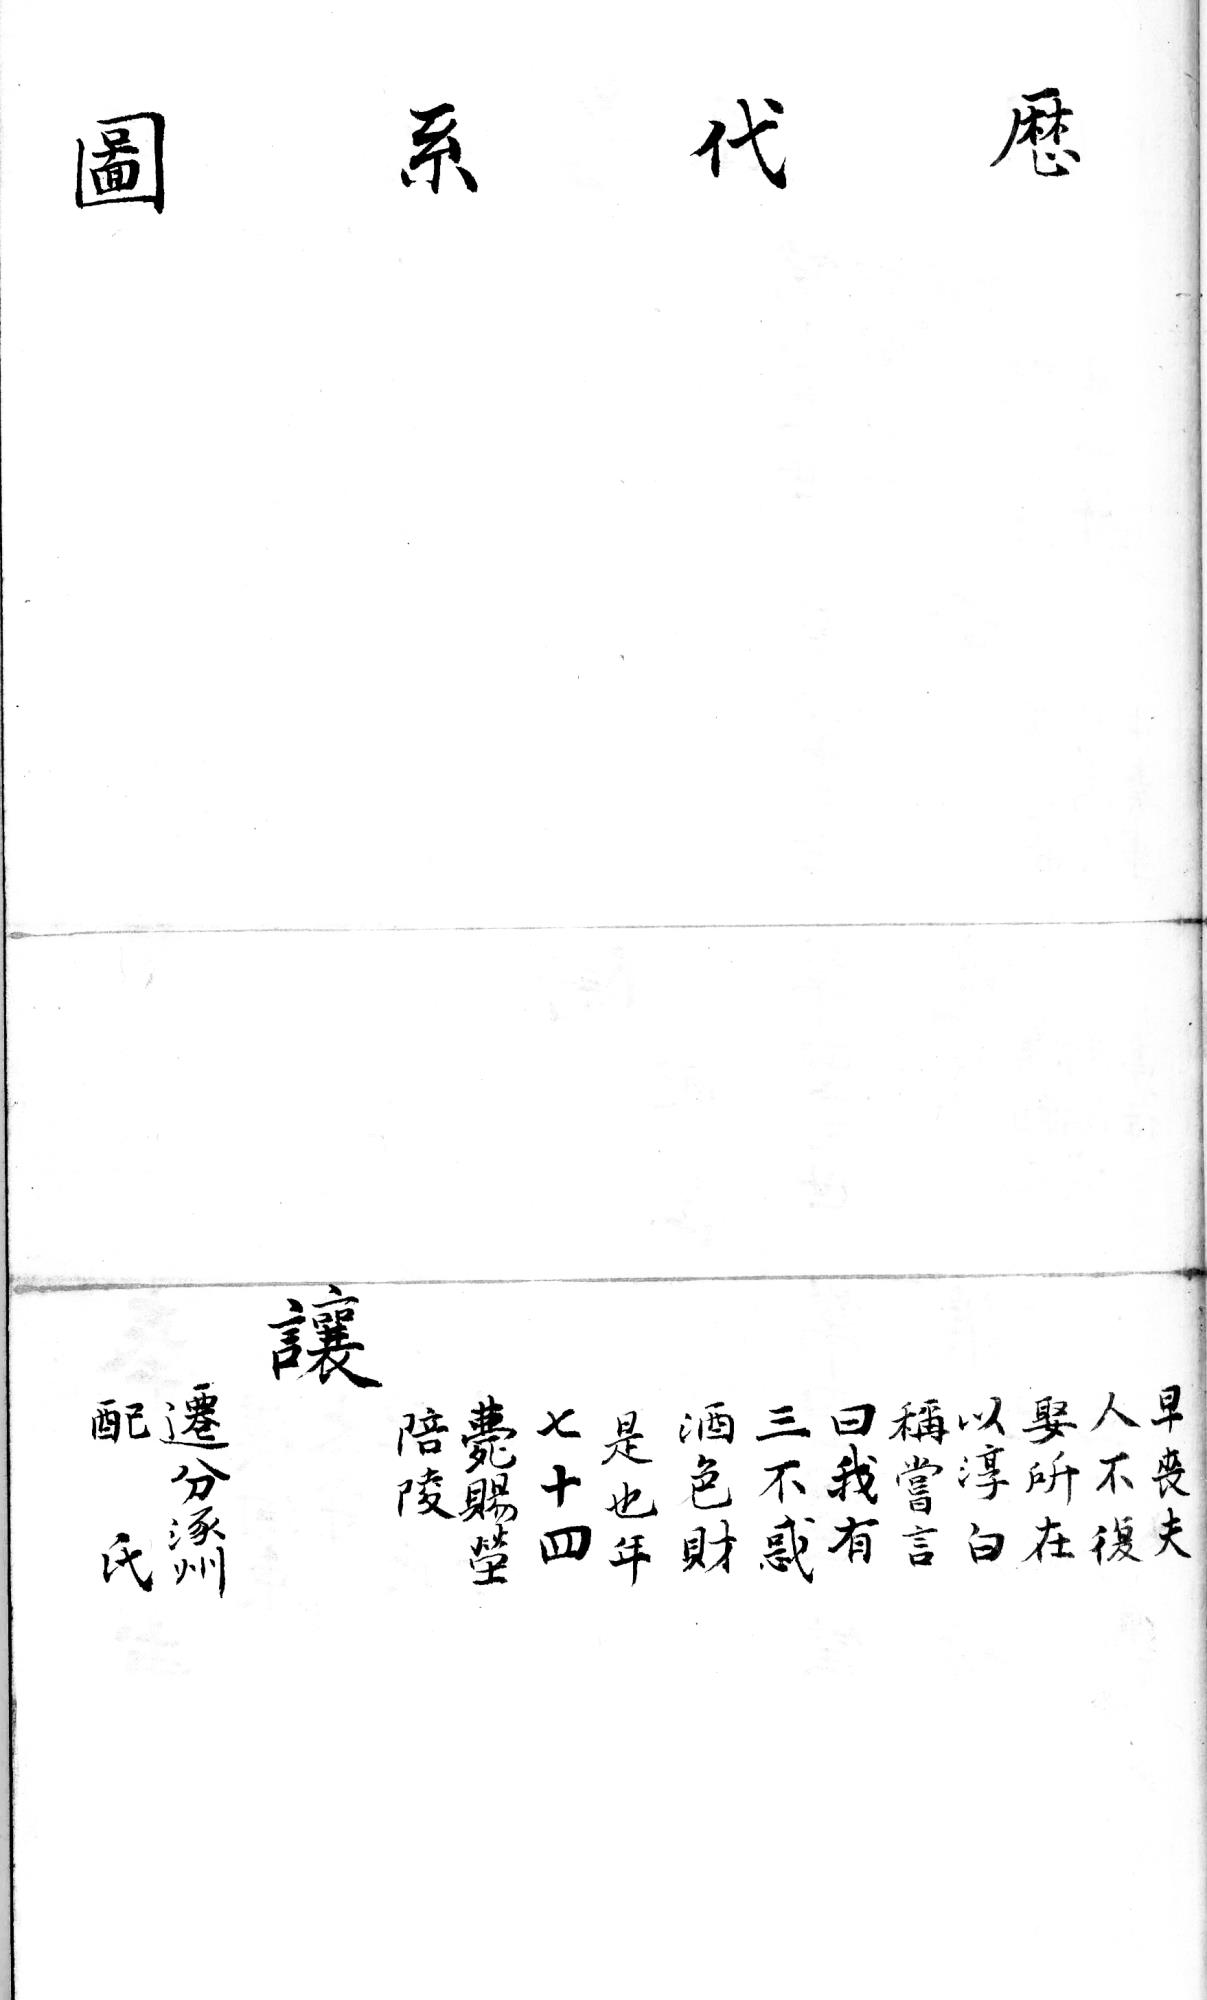 歷代系圖
早喪夫
人不復
娶所在
以淳白
稱嘗言
曰我有
三不惑
酒色財
是也年
七十四
薨賜塋
陪陵
讓
遷分涿州
配 氏